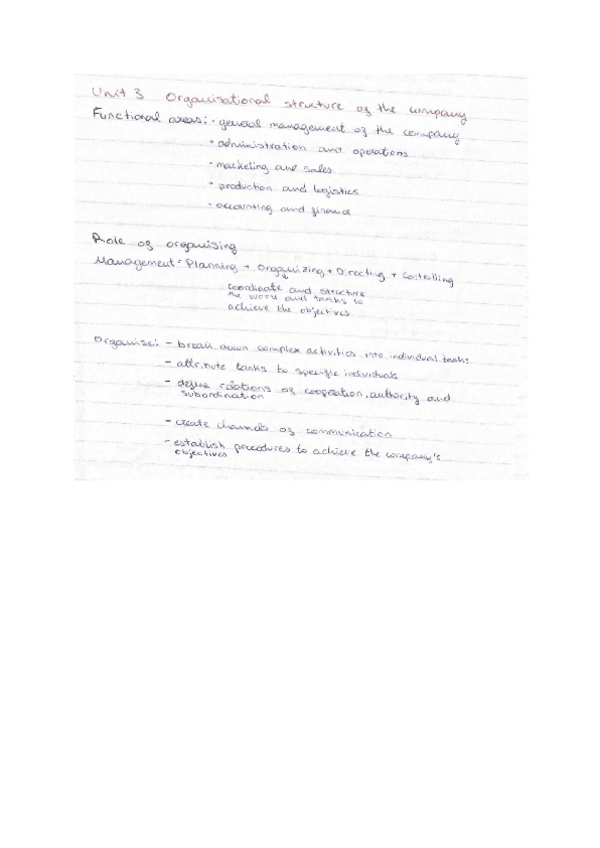 Unit 3 Organisational structure of the company
Functional areas: • general management of the company
• administration and operations
• marketing and sales
• production and logistics
• accounting and finance
Role of organising
Management = Planning + Organizing + Directing + Controlling
coordinate and structure
the work and tasks to
achieve the objectives
Organise: - break down complex activities into individual tasks
- attribute tasks to specific individuals
- define relations of cooperation, authority and
subordination
- create channels of communication
- establish procedures to achieve the company's
objectives